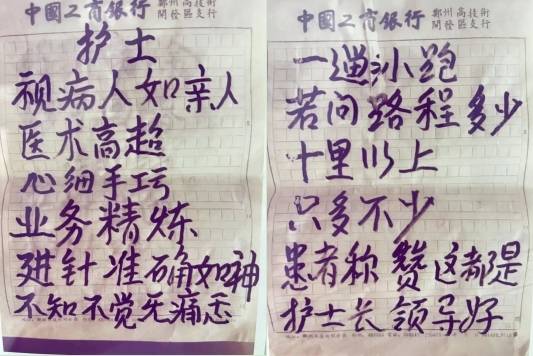 中國工商银行 鄭州高技術
開發區支行
护士
视病人如亲人
医术高超
心细手巧
业务精炼
进针准确如神
不知不觉无痛恙
中國工商银行 鄭州高技術
開發區支行
一遛小跑
若问路程多少
十里以上
只多不少
患者称赞这都是
护士长领导好